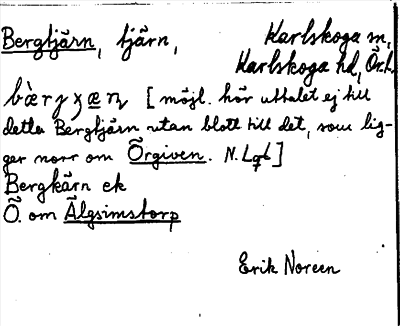 Bergtjärn, tjärn, Karlskoga sn,
Karlskoga hd, Örk.
[möjl. hör uttalet ej till
detta Bergtjärn utan blott till det, som lig-
ger norr om Örgiven. N. Lqt]
Bergkärn ek
Ö. om Älgsimstorp
Erik Noreen